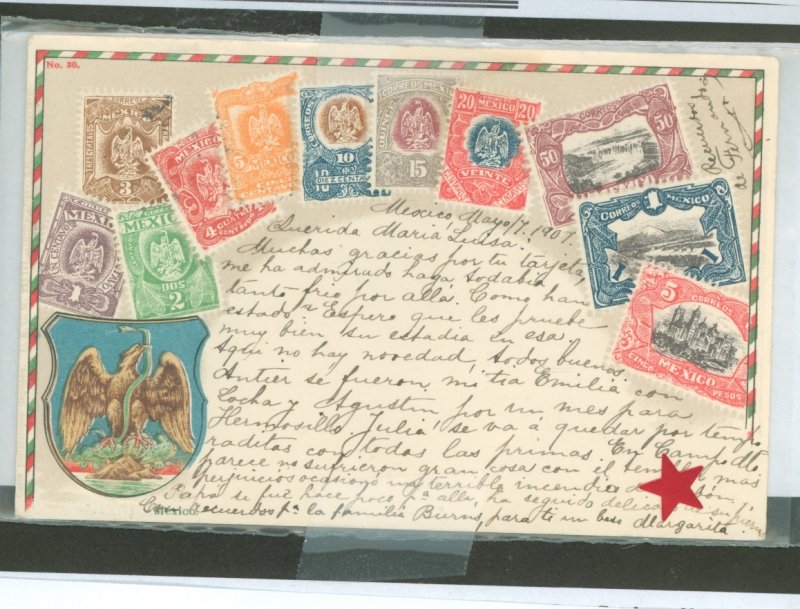 No. 80.
CORREOS MEXICO 3
CORREOS MEXICO 4 CUATRO CENTAVOS
5 MEXICO
CORREOS 10 DIEZ CENTAVOS
CORREOS MEXICO QUINCE 15
20 MEXICO 20 VEINTE
50 50
CORREOS 1 MEXICO 1 1
5 CORREOS CINCO MEXICO PESOS
UN CENTAVO MEXICO 1
CORREOS MEXICO 2 DOS
Recuerdos
de
Mexico, Mayo/7. 1907.
Querida Maria Luisa:
Muchas gracias por tu tarjeta,
me ha admirado haga todabia
tanto frio por allá. Como han
estado? Espero que les pruebe
muy bien su estadia en esa.
Aqui no hay novedad, todos buenos.
Antier se fueron, mi tia Emilia con
Cocha y Agustin por un mes para
Hermosillo. Julia se va á quedar por tempo
raditas con todas las primas. En Campo
parece no sufrieron gran cosa con el mas
perjuicios ocasionó un terrible incendio
se fué hace poco pa allá, ha seguido delicado de
recuerdos pa la familia Burns, para ti un beso Margarita.
Mexico.